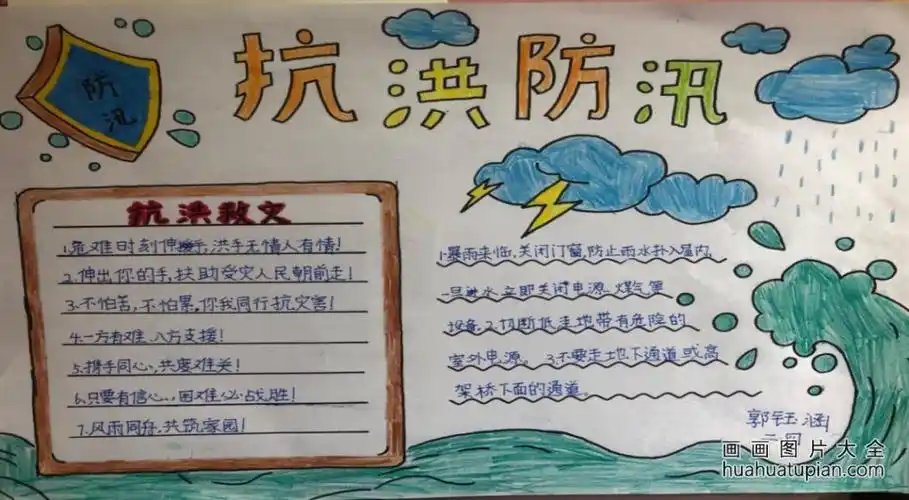 抗洪防汛
防汛
抗洪救文
1.危难时刻伸手,洪手无情人有情!
2.伸出你的手,扶助受灾人民朝前走!
3.不怕苦,不怕累,你我同行抗灾害!
4.一方有难、八方支援!
5.携手同心,共度难关!
6.只要有信心,困难必战胜!
7.风雨同舟,共筑家园!
1.暴雨来临,关闭门窗,防止雨水扑入屋内。
一旦进水,立即关闭电源、煤气等
设备。2.切断低走地带有危险的
室外电源。 3.不要走地下通道或高
架桥下面的通道。
郭钰涵
画画图片大全
huahuatupian.com